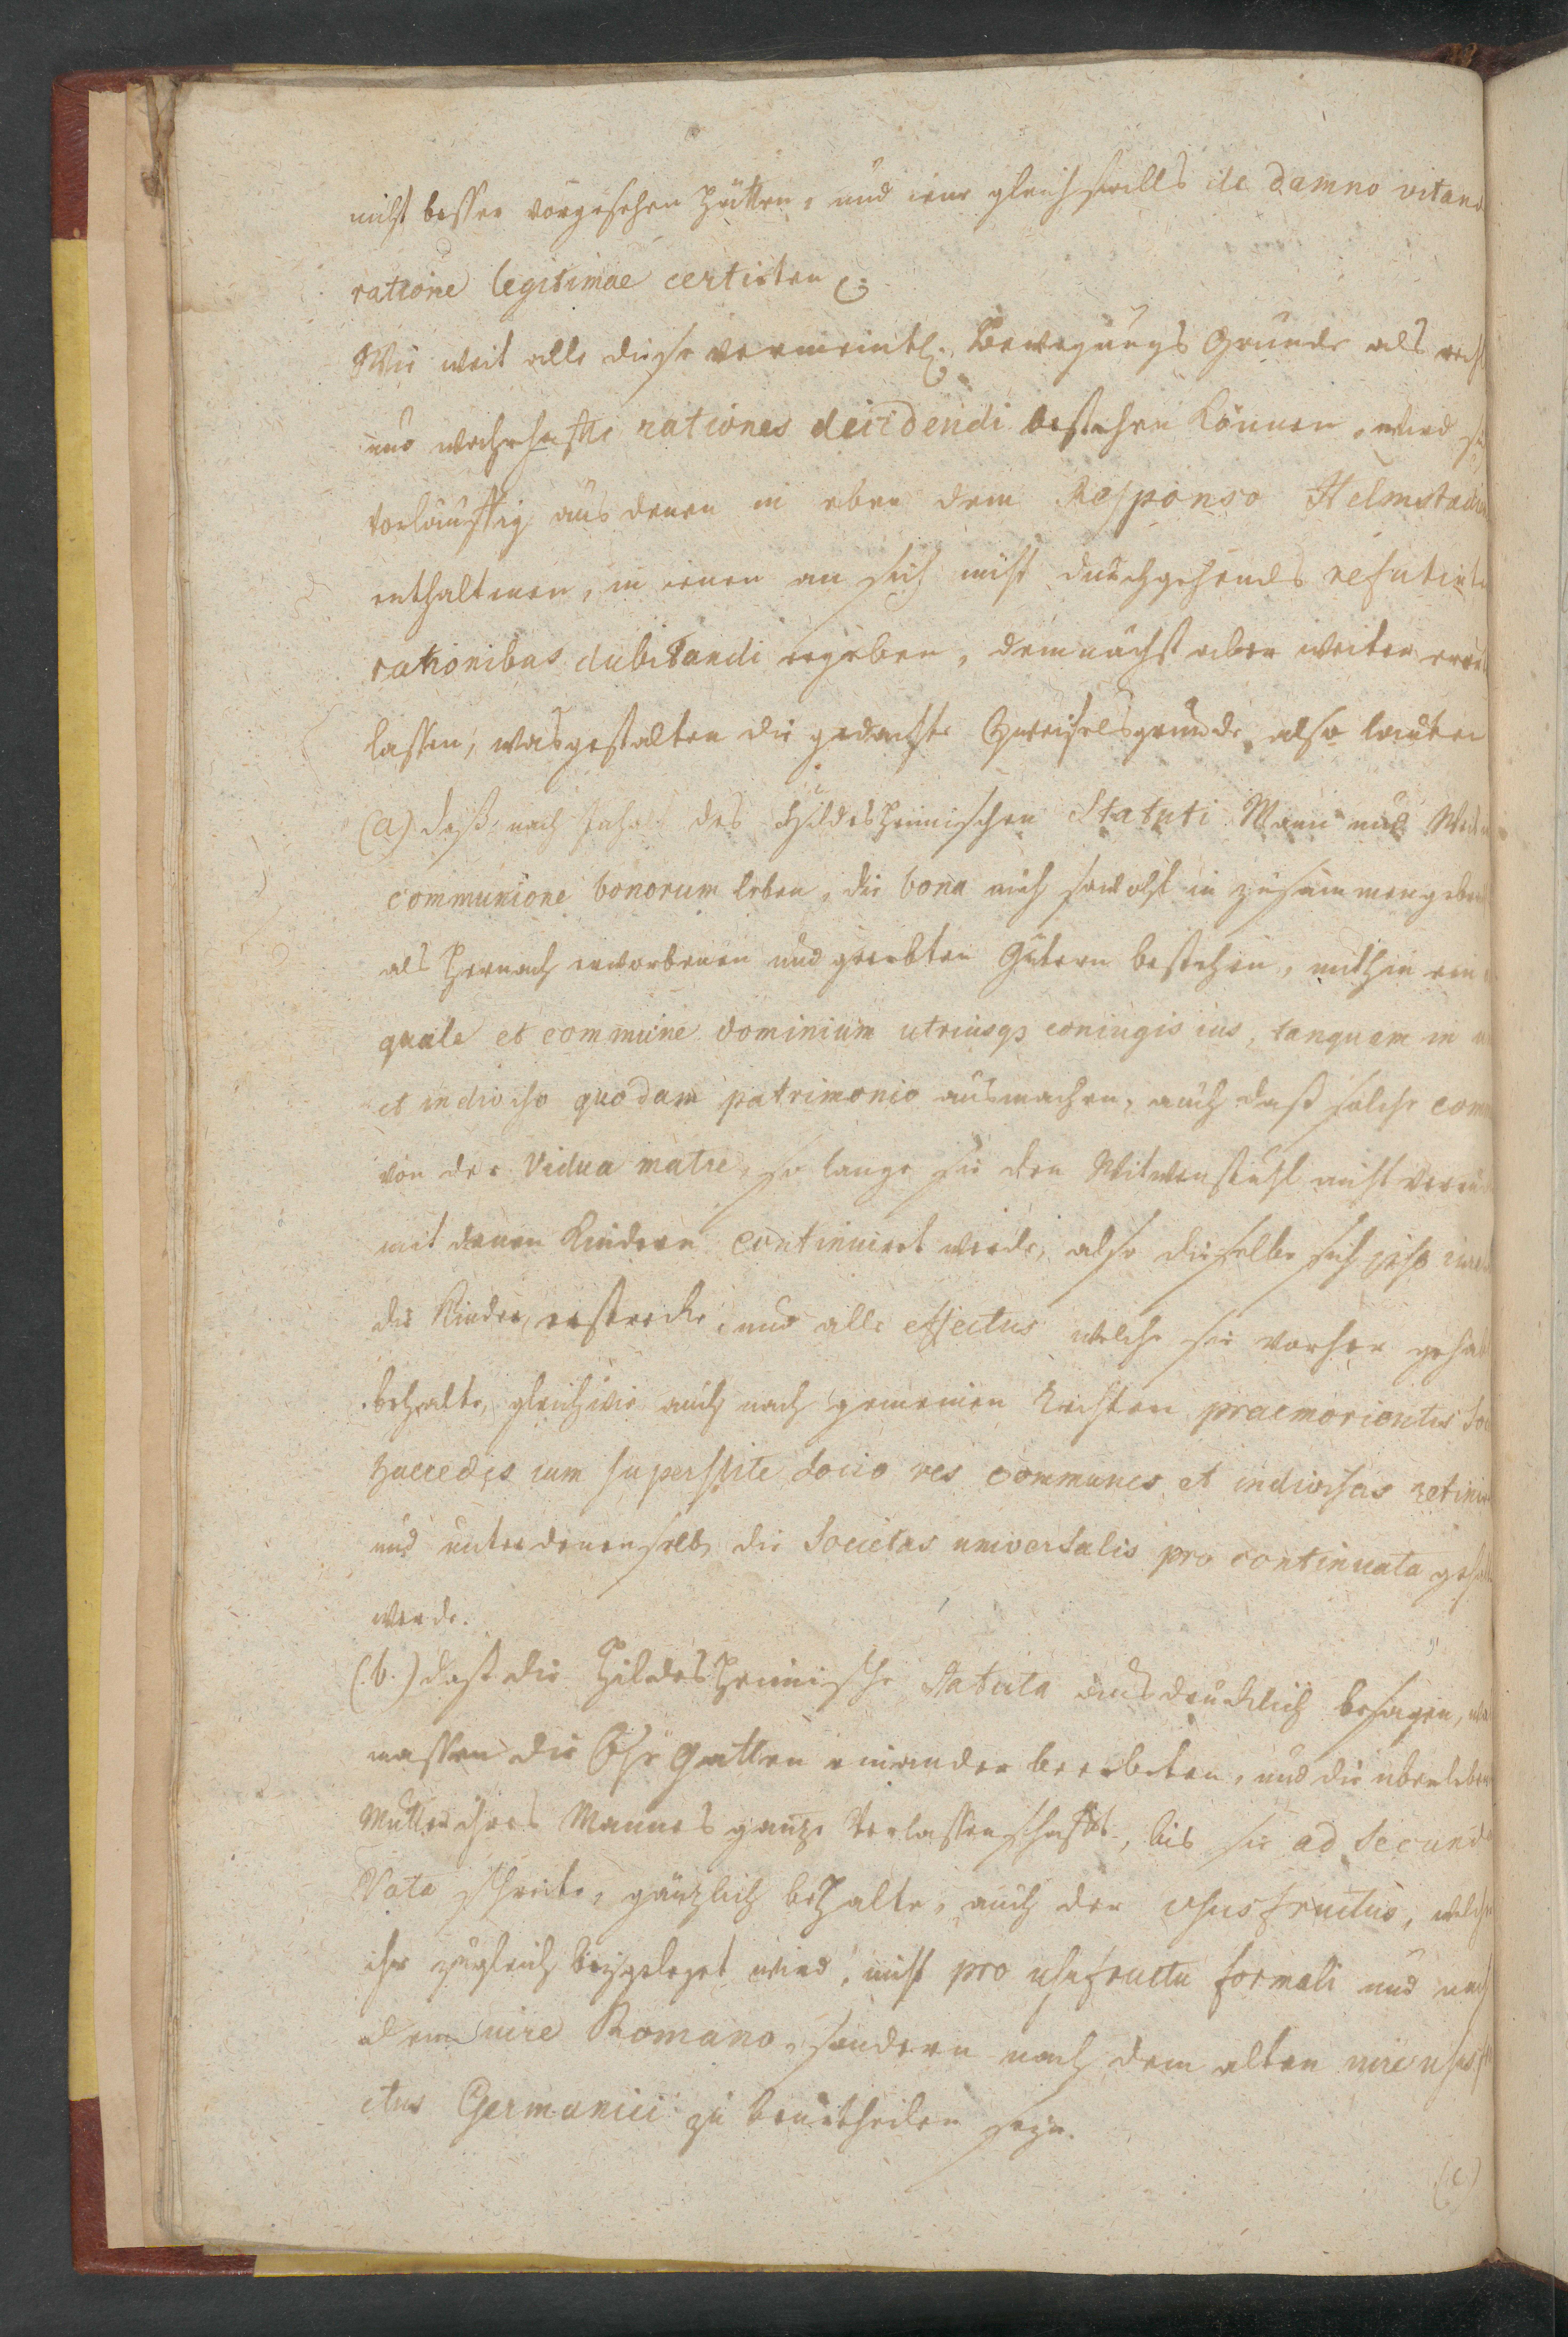 nicht besser vorgesehen hätten, und iene gleichfalls de damno vitan
ratione legitimae certirten
Wie weit alle diese vermeintl. Bewegungs Grunde als
und wahrhaffte rationes decidendi bestehen können, wird
vorläuffig aus denen in eben dem Responso Helmstad
enthaltenen, in ienen an sich nicht durchgehends refutirte
rationibus dubitandi ergeben, demnächst aber weiter
lassen, wasgestalten die gedachte Zweifelsgrunde also lauten
(a) daß nach Inhalt des Hildesheimischen Statuti Mann und
communione bonorum leben, die bona auch sowohl in zusammengebr
als hernach erworbenen und geerbten Gütern bestehen, mithin ein
quale et commune dominium utriusq coniugis ius, tanquam in
et indiviso quodam patrimonio ausmachen, auch daß solche com
von der Vidua matre, so lange sie den Witwenstuhl nicht verru
mit denen Kindern continuirt werde, also dieselbe sich ipso iure
die Kinder erstrecke, und alle effectus welche sie vorher gehab
behalte, gleichwie auch nach gemeinen Rechten praemorientis So
haeredes cum superstite Socio res communes et indivisas retin
und unter denenselb. die Societas universalis pro continuata geh
werde.
(b.) daß die Hildesheimische Statuta ausdrucklich besagen,
massen die Ehe Gatten einander beerbeten, und die uberleben
Mutter ihres Mannes ganze Verlassenschafft, bis sie ad Secund
Vota schreite, gänzlich behalte, auch der ususfructus, welch
ihr zugleich beygeleget wird, nicht pro usufructu formali und nach
dem iure Romano, sondern nach dem alten iure
ctus Germanici zu beurtheilen seyn.
(c)